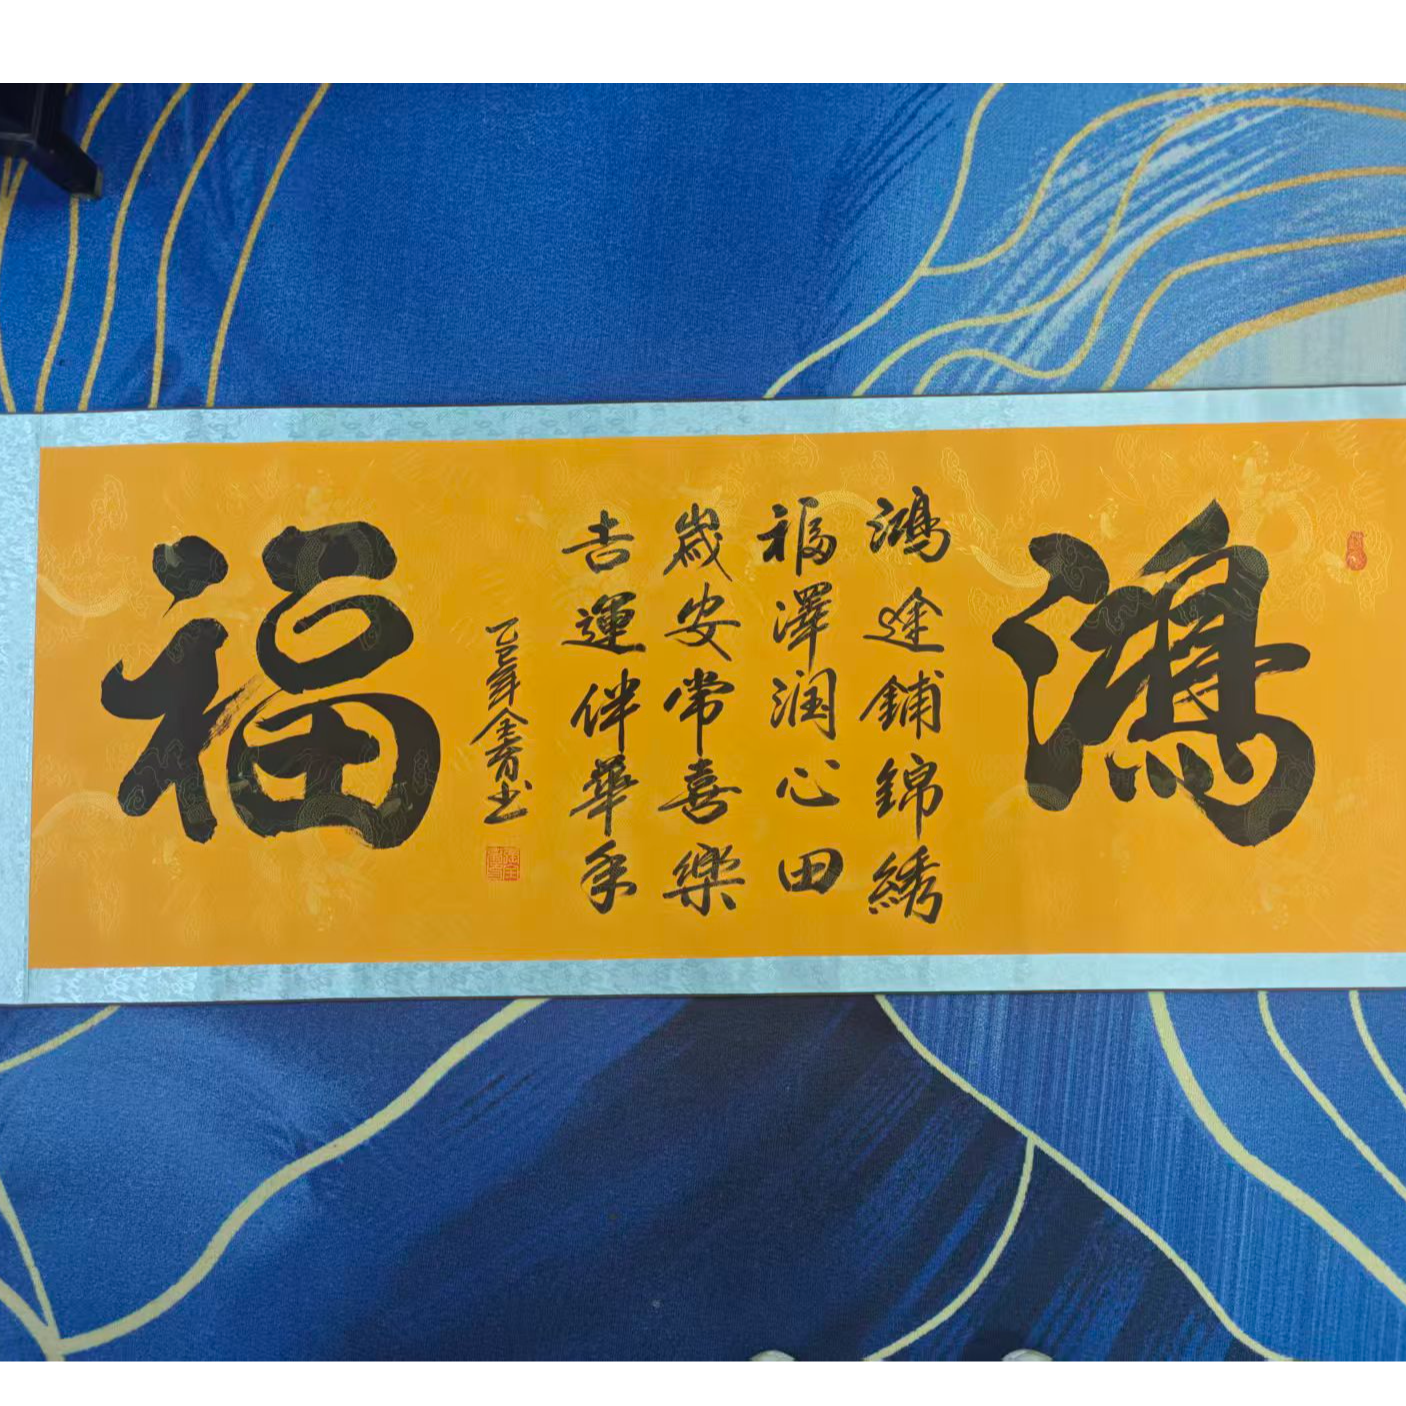 鴻
鴻途鋪錦綉
福澤润心田
歲安常喜樂
吉運伴華年
乙巳年全育书
福